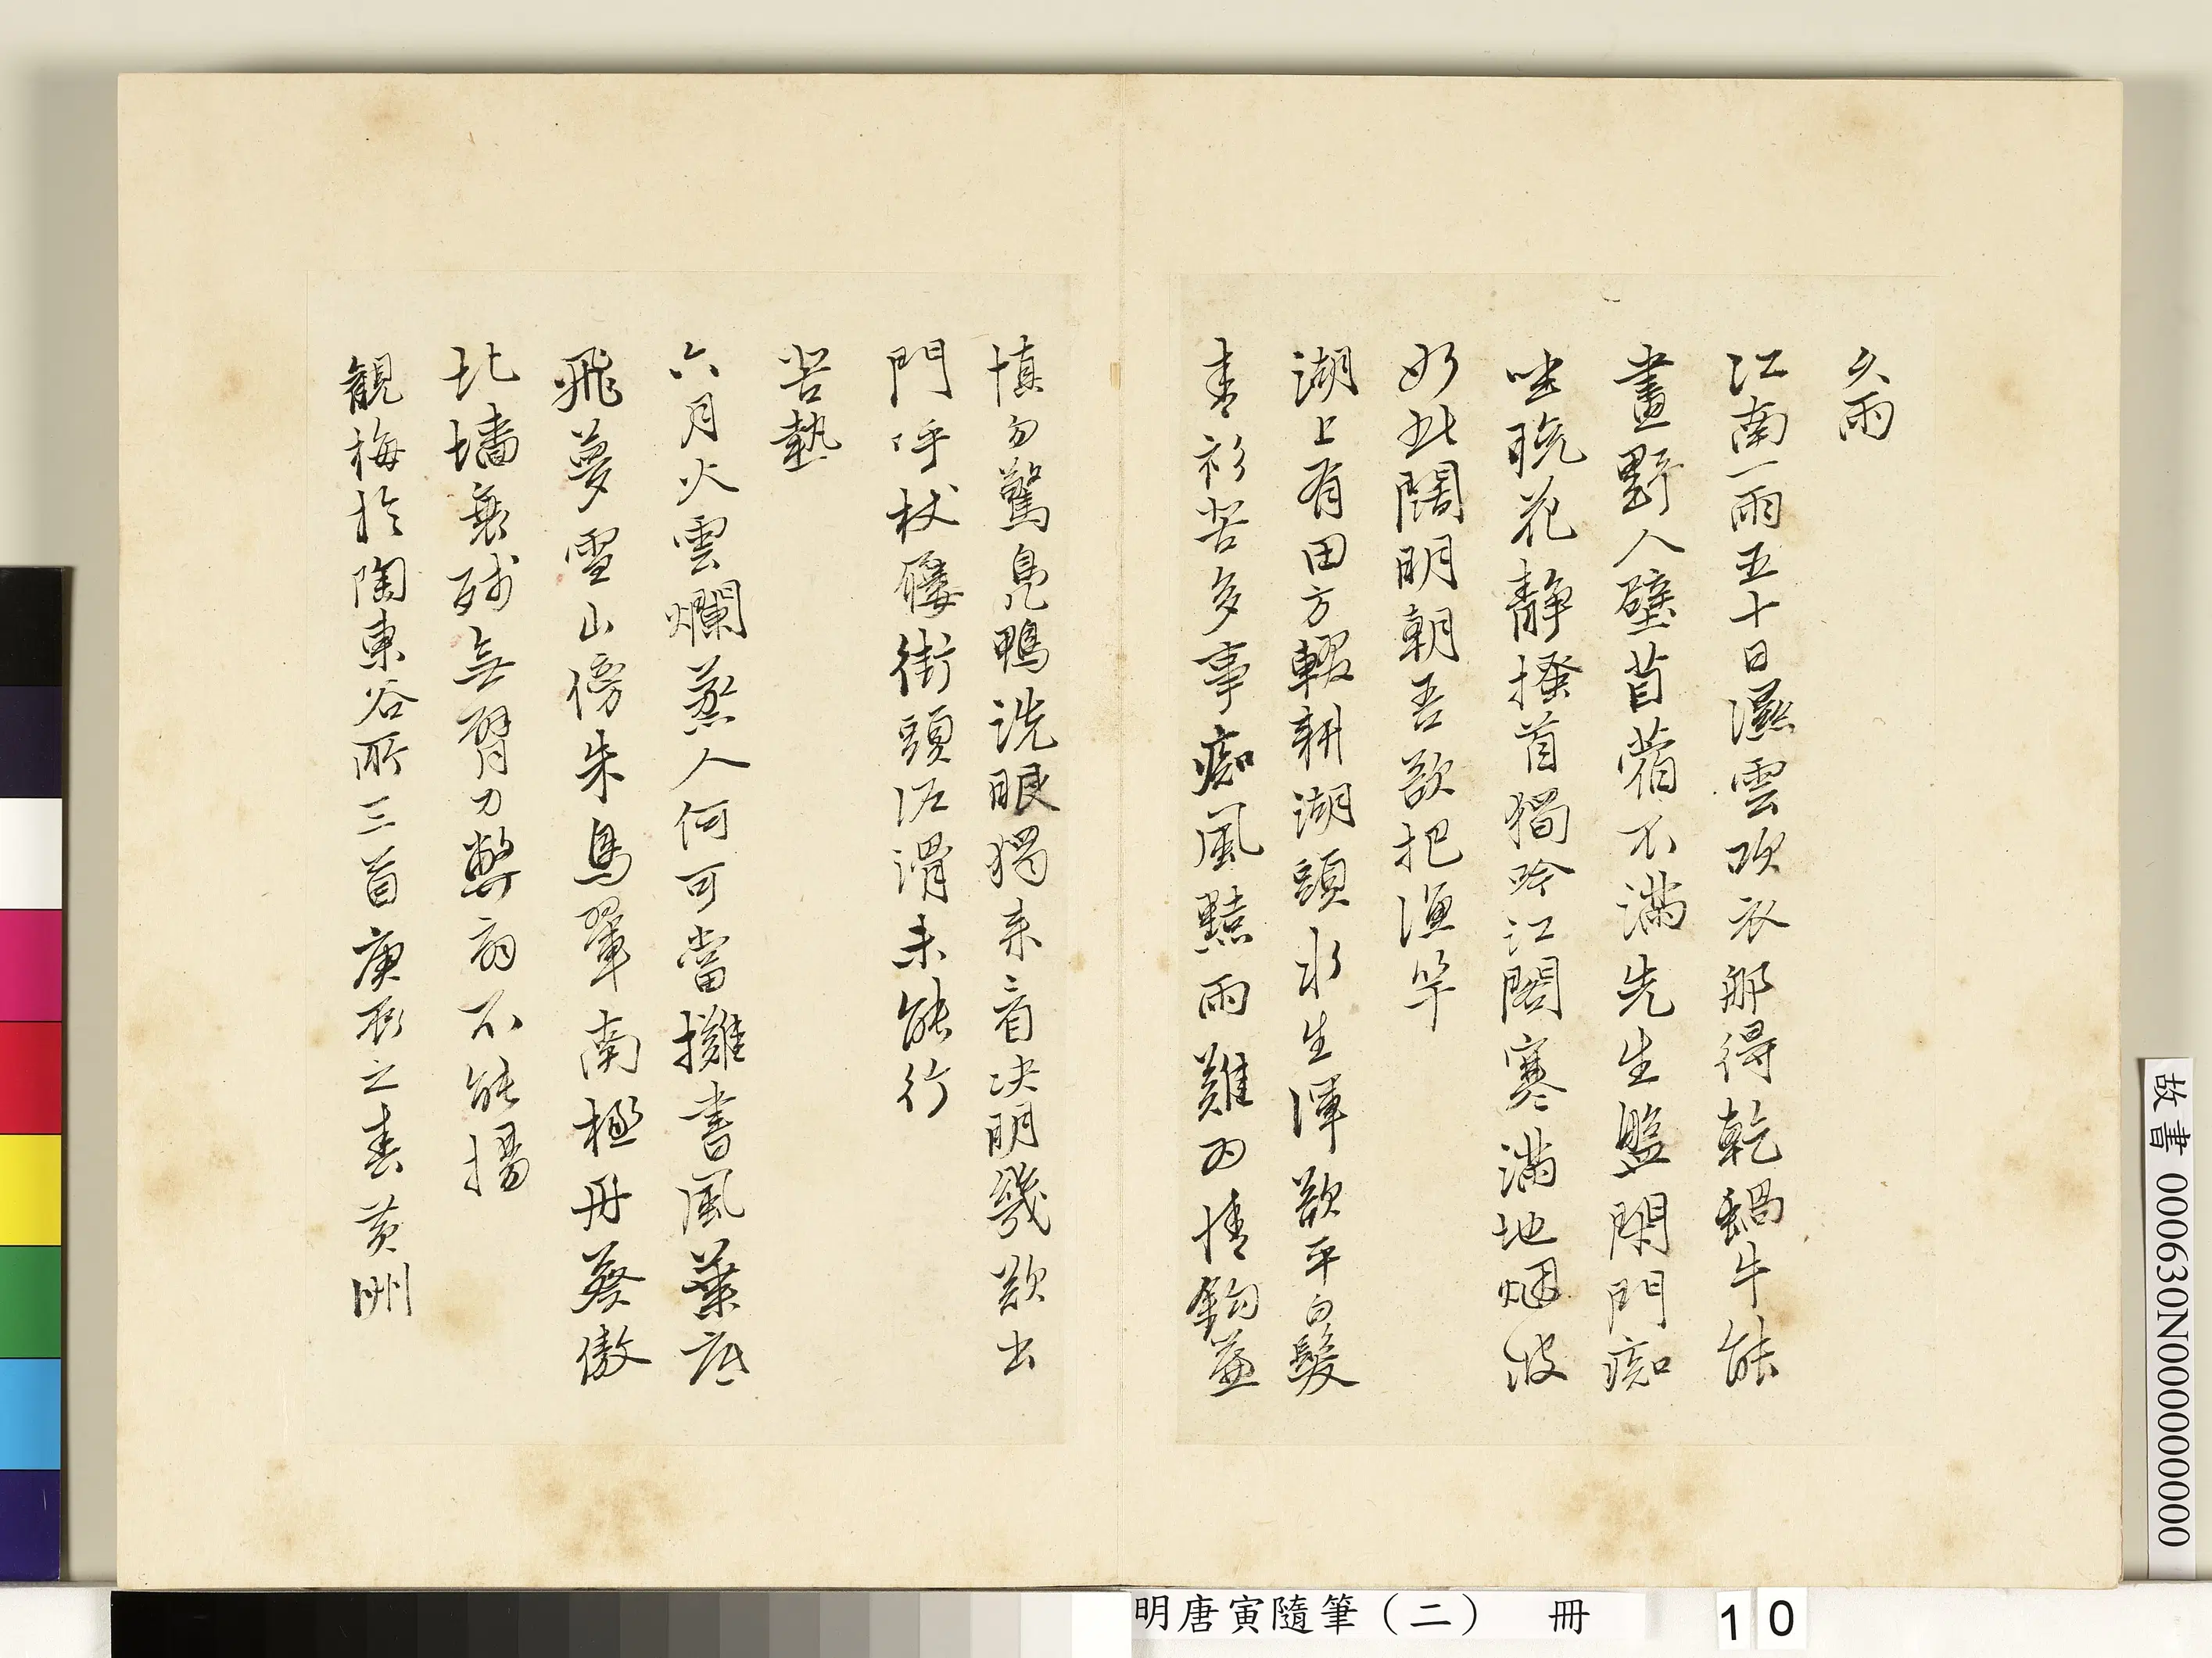 久雨
江南一雨五十日濕雲吹衣那得乾蝸牛能
畫野人壁苜蓿不滿先生盤閉門痴
坐晚花靜搔首獨吟江閣寒滿地烟波
如此闊明朝吾欲把漁竿
湖上有田方輟耕湖頭水生渾欲平白髮
青衫苦多事痴風黠雨難為情鉤簾
慎勿驚鳧鴨洗眼獨來看决明幾欲出
門呼杖屨街頭泥滑未能行
苦熱
六月火雲爛蒸人何可當攤書風葉底
飛夢雪山傍朱鳥翬南極丹葵傲
北墻衰殘無臂力弊扇不能揚
觀梅於陶東谷所三首庚辰之春黃州
明唐寅隨筆（二） 冊 10
故書 000630N000000000